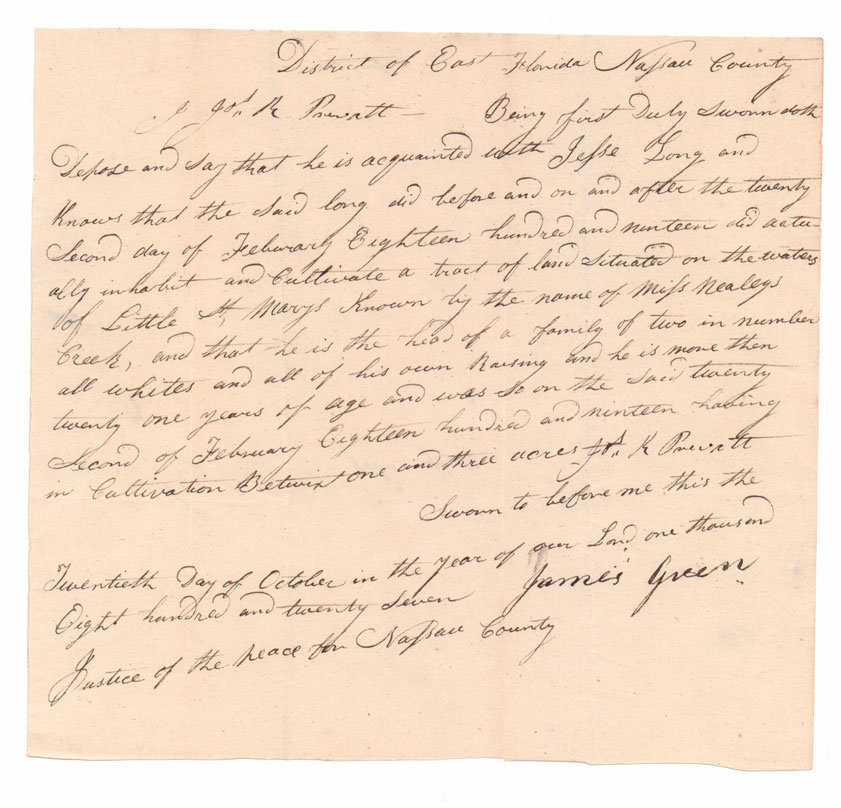 District of East Florida Nassau County
I Jos. R Prevatt — Being first Duly Sworn doth
Depose and Say that he is acquainted with Jesse Long and
Knows that the Said long did before and on and after the twenty
Second day of Feburary Eighteen hundred and nineteen did actu-
ally inhabit and Cultivate a tract of land Situated on the waters
of Little St. Marys Known by the name of Miss Nealeys
Creek, and that he is the head of a family of two in number
all whites and all of his own Raising and he is more then
twenty one years of age and was So on the Said twenty
Second of February Eighteen hundred and nineteen having
in Cultivation Betwixt one and three acres Jos. R Prevatt
Sworn to before me this the
Twentieth Day of October in the year of our Lord one thousand
Eight hundred and twenty Seven James Green
Justice of the peace for Nassau County